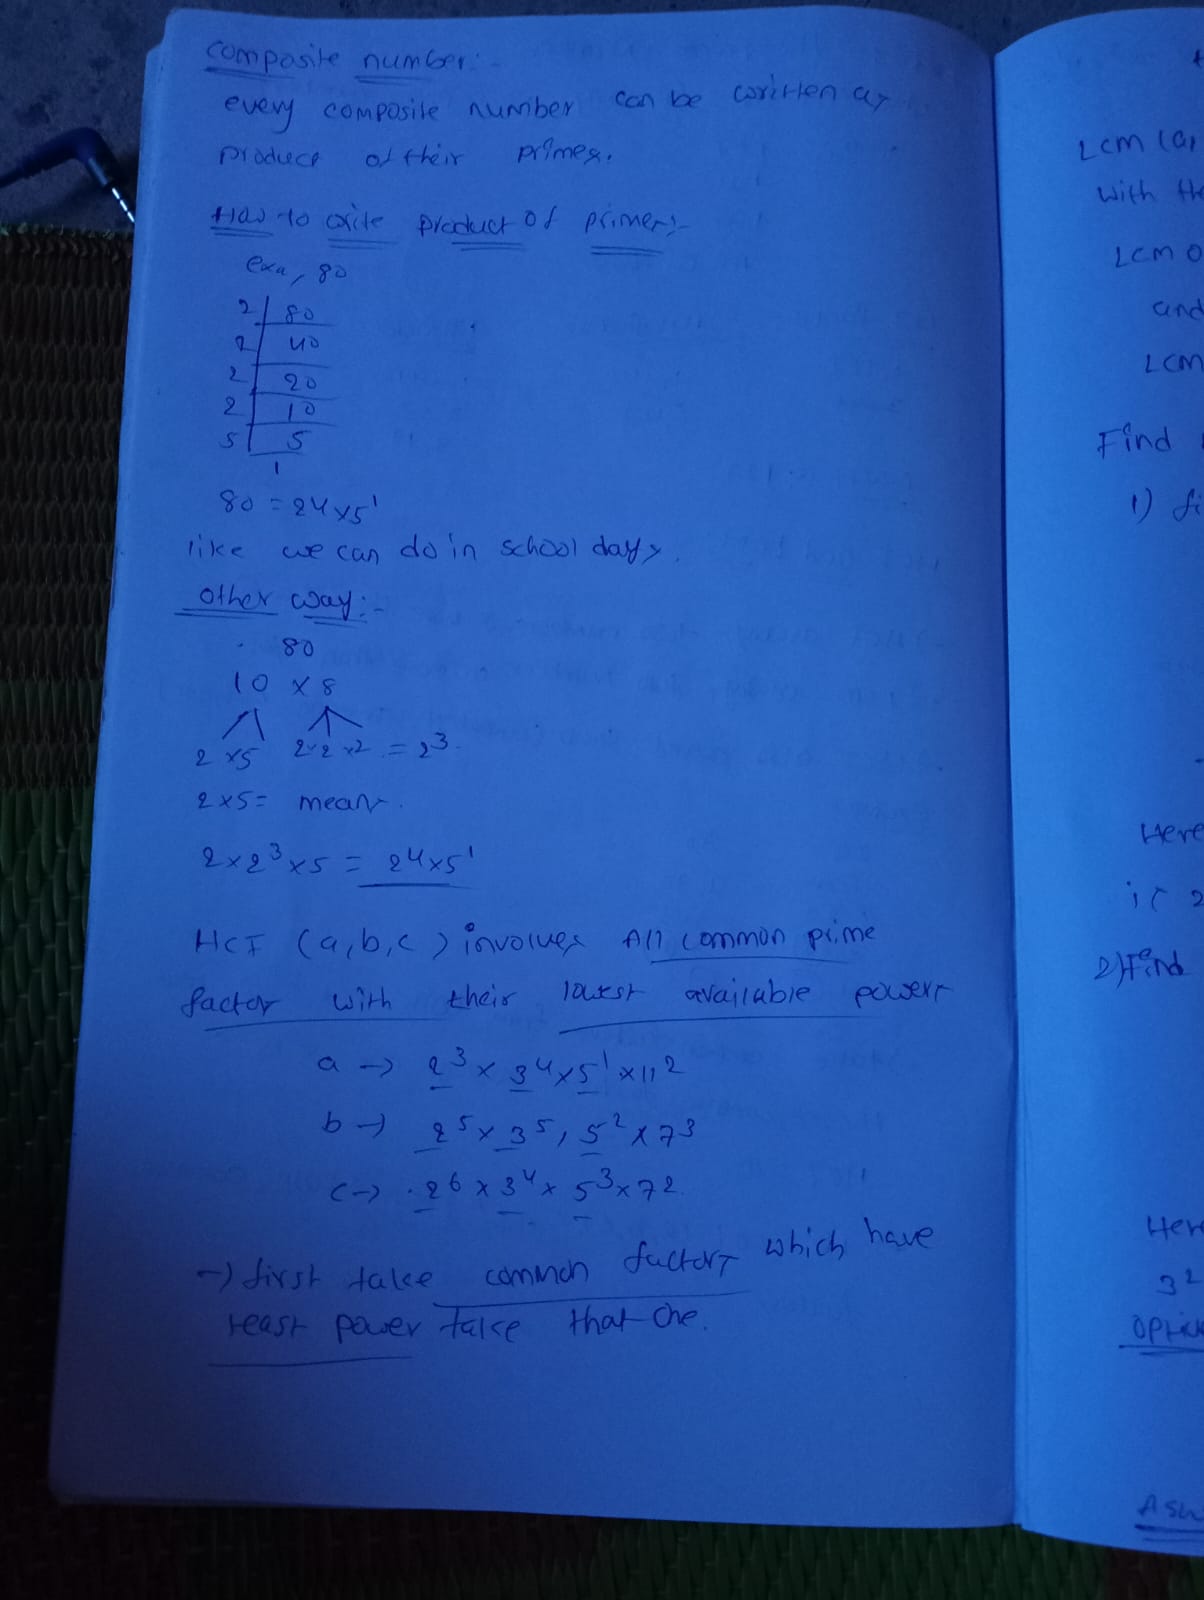 composite number:-
every composite number can be written as
product of their primes.
How to write product of primes:-
exa, 80
2 | 80
2 | 40
2 | 20
2 | 10
5 | 5
1
80 = 2⁴ x 5¹
like we can do in school days.
other way:-
80
10 x 8
2 x 5 2 x 2 x 2 = 2³.
2 x 5 = means.
2 x 2³ x 5 = 2⁴ x 5¹
HCF (a, b, c) involves All common prime
factor with their lowest available powers
a → 2³ x 3⁴ x 5¹ x 11²
b → 2⁵ x 3⁵, 5² x 7³
c → 2⁶ x 3⁴ x 5³ x 7²
→ first take common factors which have
least power take that one.
LCM (a,
with the
LCM o
and
LCM
Find
1) fi
Here
is 2
2) Find
Here
3²